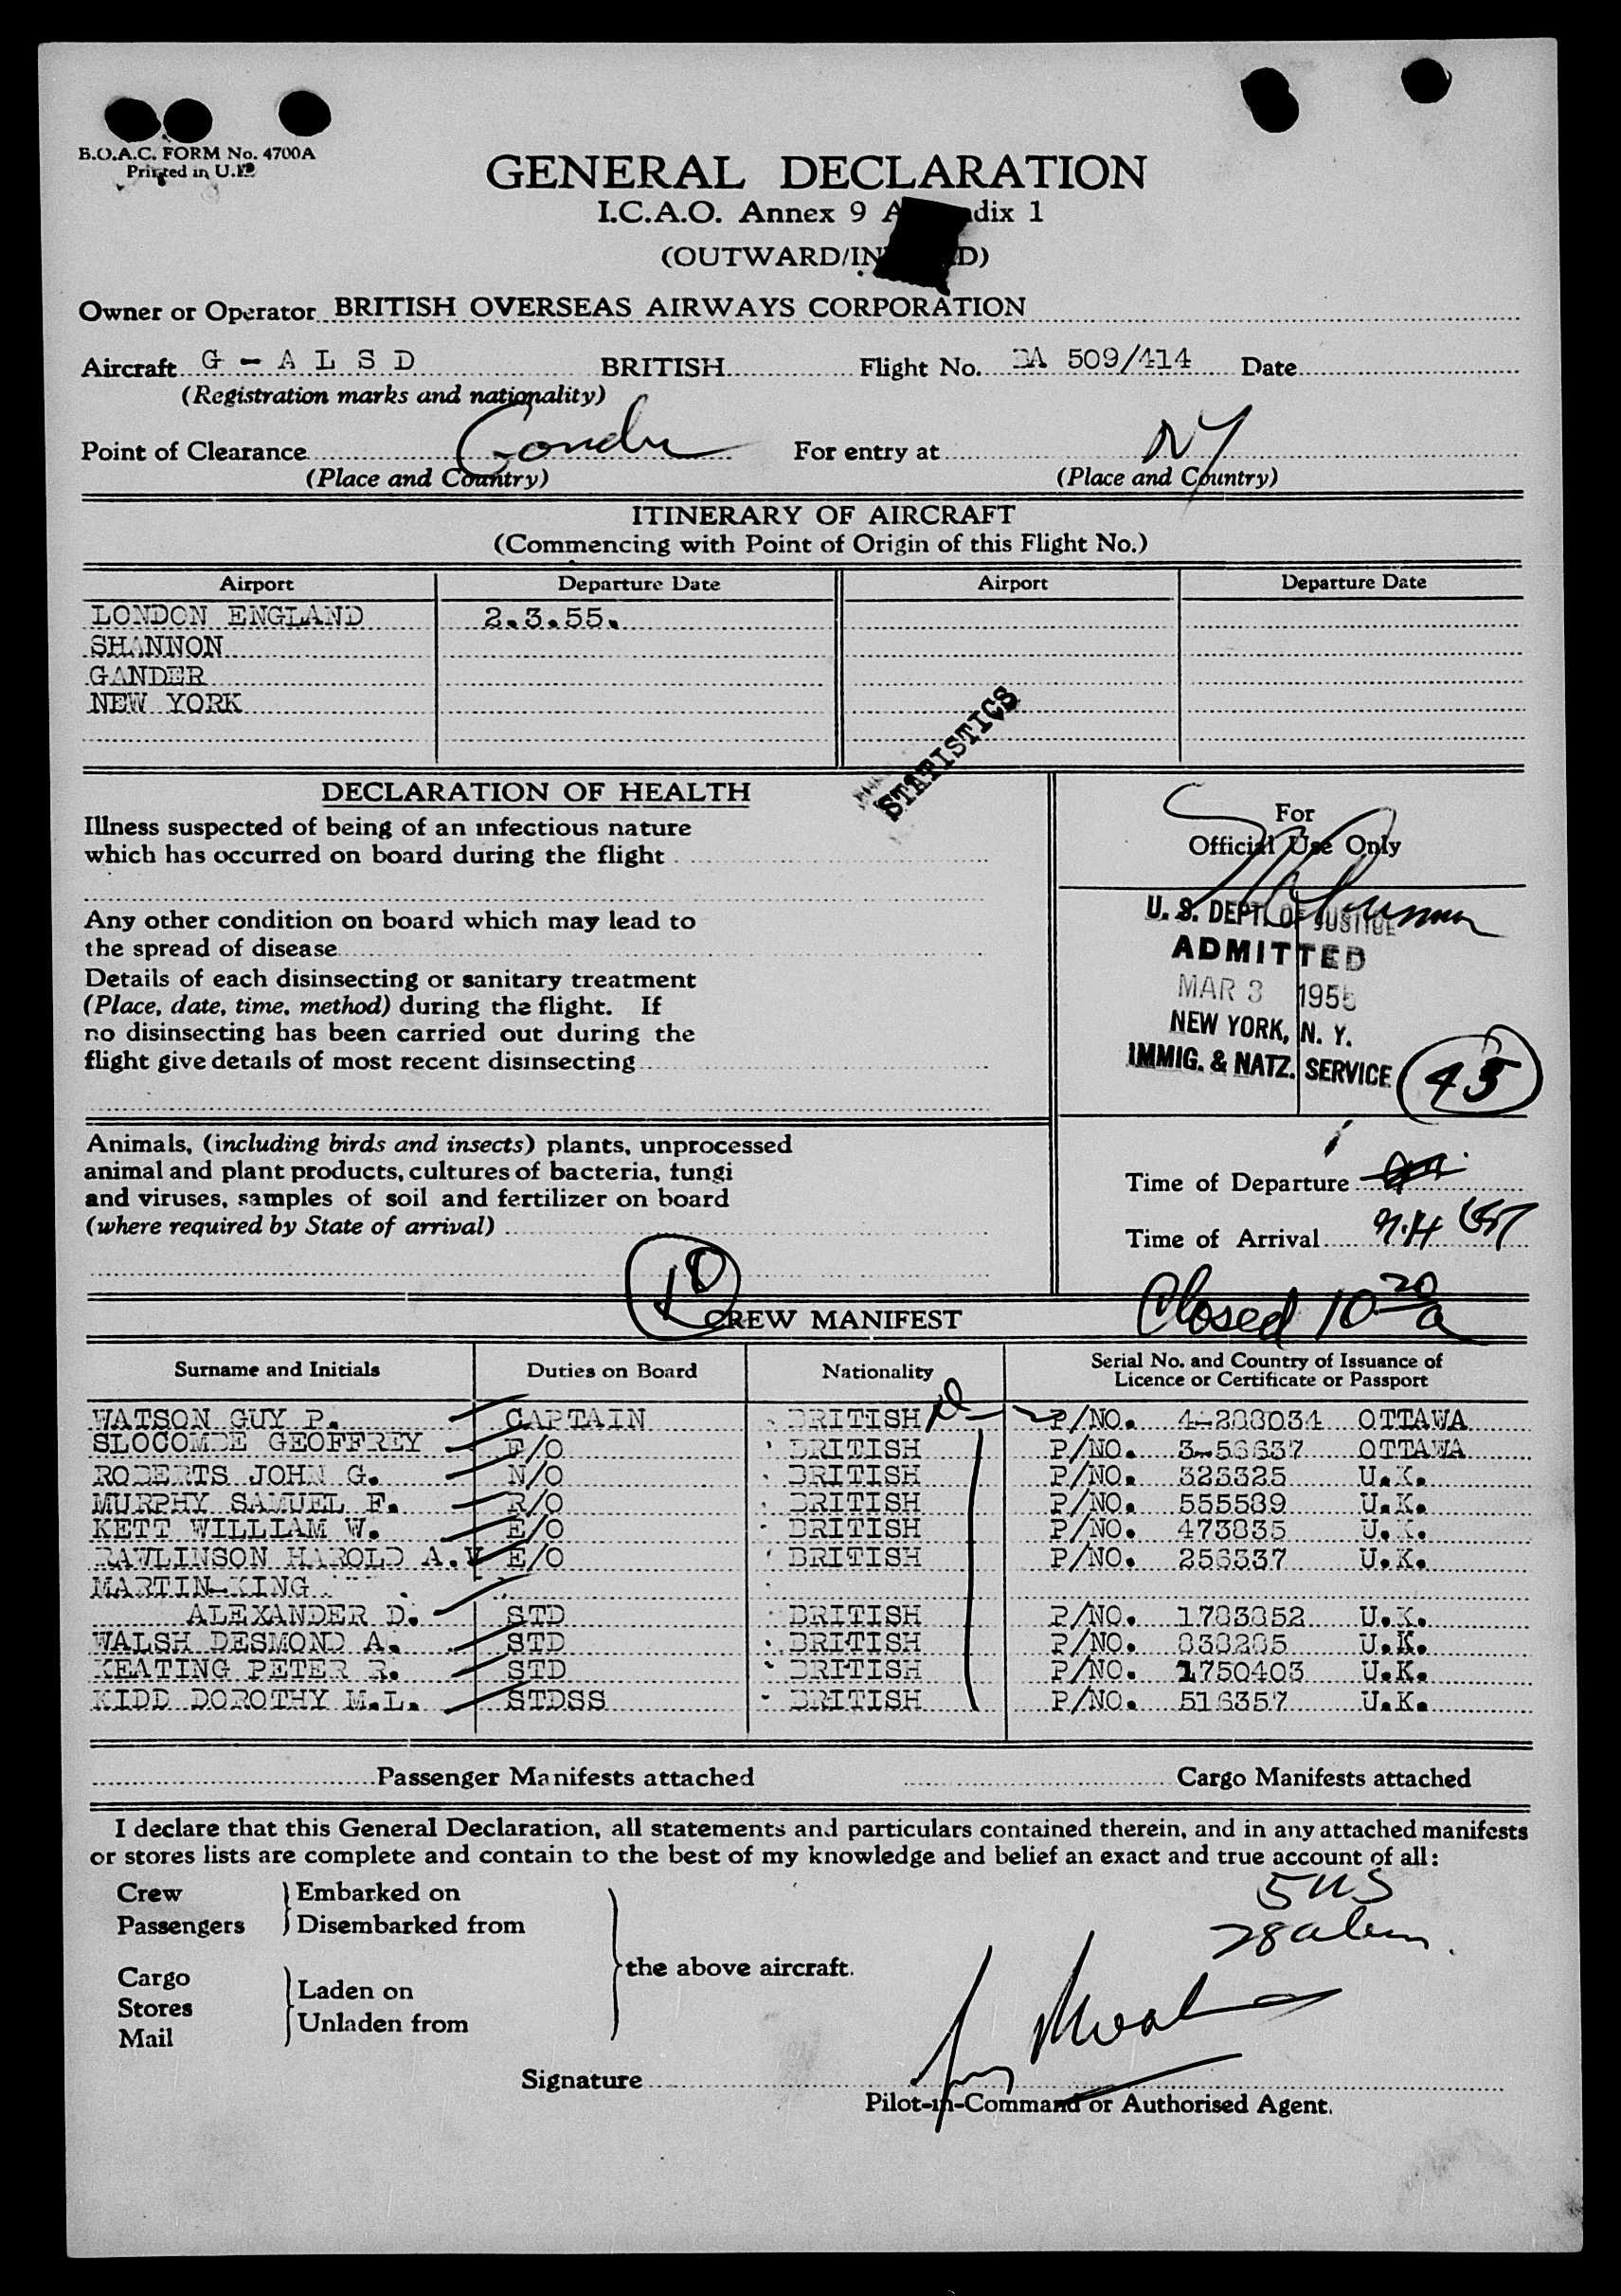 B.O.A.C. FORM No. 4700A
Printed in U.K.
GENERAL DECLARATION
I.C.A.O. Annex 9 A dix 1
(OUTWARD/IN D)
Owner or Operator BRITISH OVERSEAS AIRWAYS CORPORATION
Aircraft G - A L S D BRITISH Flight No. BA 509/414 Date
(Registration marks and nationality)
Point of Clearance Gander For entry at NY
(Place and Country) (Place and Country)
ITINERARY OF AIRCRAFT
(Commencing with Point of Origin of this Flight No.)
Airport Departure Date Airport Departure Date
LONDON ENGLAND 2.3.55.
SHANNON
GANDER
NEW YORK
STATISTICS
DECLARATION OF HEALTH
Illness suspected of being of an infectious nature
which has occurred on board during the flight
Any other condition on board which may lead to
the spread of disease
Details of each disinsecting or sanitary treatment
(Place, date, time, method) during the flight. If
no disinsecting has been carried out during the
flight give details of most recent disinsecting
For
Official Use Only
U. S. DEPT. OF JUSTICE
ADMITTED
MAR 3 1955
NEW YORK, N. Y.
IMMIG. & NATZ. SERVICE
45
Animals, (including birds and insects) plants, unprocessed
animal and plant products, cultures of bacteria, fungi
and viruses, samples of soil and fertilizer on board
(where required by State of arrival)
Time of Departure
Time of Arrival
10
Closed 10 20 a
CREW MANIFEST
Surname and Initials Duties on Board Nationality Serial No. and Country of Issuance of
Licence or Certificate or Passport
WATSON GUY P. CAPTAIN BRITISH P/NO. 4-288034 OTTAWA
SLOCOMBE GEOFFREY F/O BRITISH P/NO. 3-56637 OTTAWA
ROBERTS JOHN G. N/O BRITISH P/NO. 323325 U.K.
MURPHY SAMUEL F. R/O BRITISH P/NO. 555589 U.K.
KETT WILLIAM W. E/O BRITISH P/NO. 473835 U.K.
RAWLINSON HAROLD A.V. E/O BRITISH P/NO. 256337 U.K.
MARTIN-KING
ALEXANDER D. STD BRITISH P/NO. 1783852 U.K.
WALSH DESMOND A. STD BRITISH P/NO. 838285 U.K.
KEATING PETER R. STD BRITISH P/NO. 1750403 U.K.
KIDD DOROTHY M.L. STDSS BRITISH P/NO. 516357 U.K.
Passenger Manifests attached Cargo Manifests attached
I declare that this General Declaration, all statements and particulars contained therein, and in any attached manifests
or stores lists are complete and contain to the best of my knowledge and belief an exact and true account of all:
Crew
Passengers
Embarked on
Disembarked from
Cargo
Stores
Mail
Laden on
Unladen from
the above aircraft.
5 US
28 alien
Signature
Pilot-in-Command or Authorised Agent.